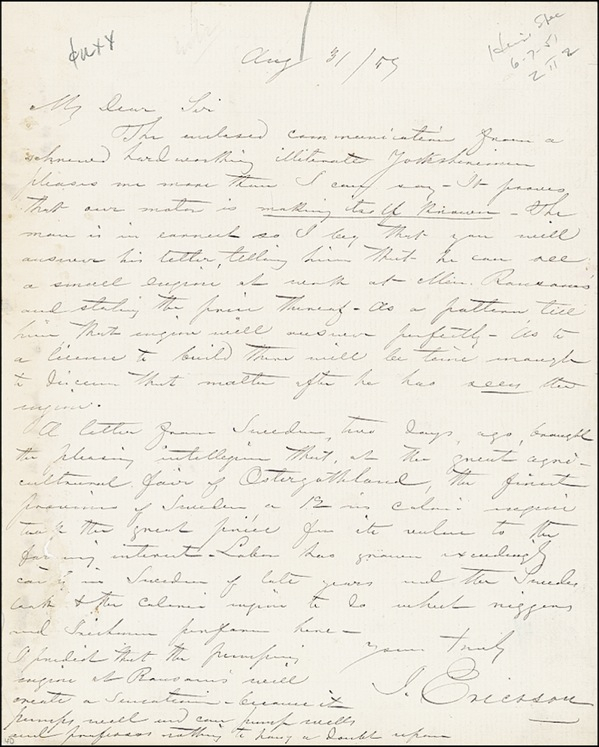 Aug 31/59
My Dear Sir
The enclosed communication from a
shrewd hardworking illiterate Yorkshireman
pleases me more than I can say - It proves
that our motor is making itself known - The
man is in earnest so I beg that you will
answer his letter, telling him that he can see
a small engine at work at Ransom's
and stating the price thereof - As a pattern tell
him that engine will answer perfectly - As to
a license to build there will be time enough
to discuss that matter after he has seen the
engine.
A letter from Sweden, two days, ago, brought
the pleasing intelligence that, at the great agri-
cultural fair of Ostergothland, the finest
province of Sweden a 12 in caloric engine
took the great prize for its value to the
farming interest - Labor has grown exceedingly
in Sweden of late years and the Swedes
look to the caloric engine to do what niggers
and Irishmen perform here -
Yours truly
I predict that the pumping
engine at Ransom's will
J. Ericsson
create a sensation - because it
pumps well and can pump wells
and professes nothing to hang a doubt upon